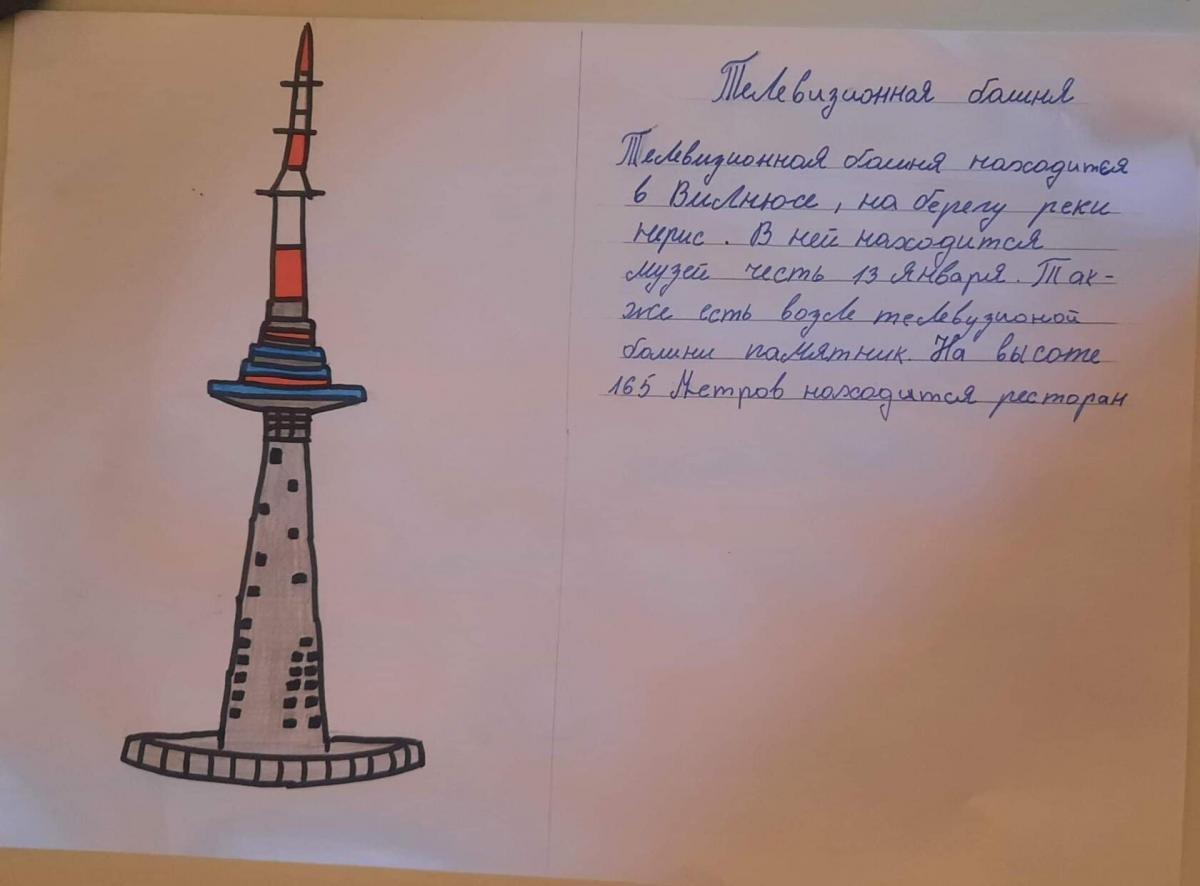 Телевизионная башня
Телевизионная башня находится
в Вилнюсе, на берегу реки
нерис. В ней находится
музей честь 13 Января. Так-
же есть возле телевузионой
башни памятник. На высоте
165 Метров находится ресторан